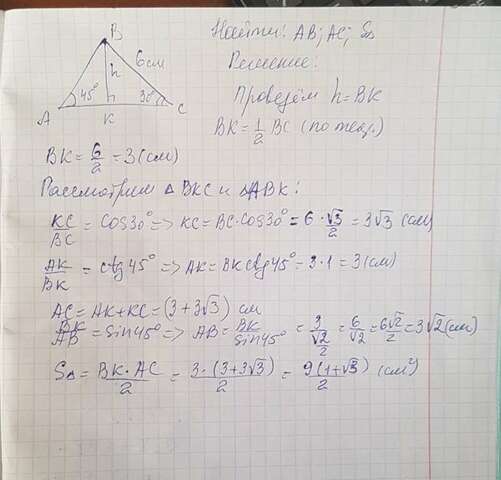 Найти: AB; AC; S∆
Решение:
Проведём h=BK
BK=1/2 BC (по теор.)
B
6 см
h
45°
30°
A
K
C
BK=6/2=3(см)
Рассмотрим ∆ BKC и ∆ABK:
KC/BC = cos30° => KC=BC·cos30°=6·√3/2=3√3 (см)
AK/BK = ctg45° => AK=BKctg45°=3·1=3(см)
AC=AK+KC=(3+3√3) см
BK/AB=sin45° => AB=BK/sin45°=3/(√2/2)=6/√2=6√2/2=3√2(см)
S∆=BK·AC/2=3·(3+3√3)/2=9(1+√3)/2 (см²)